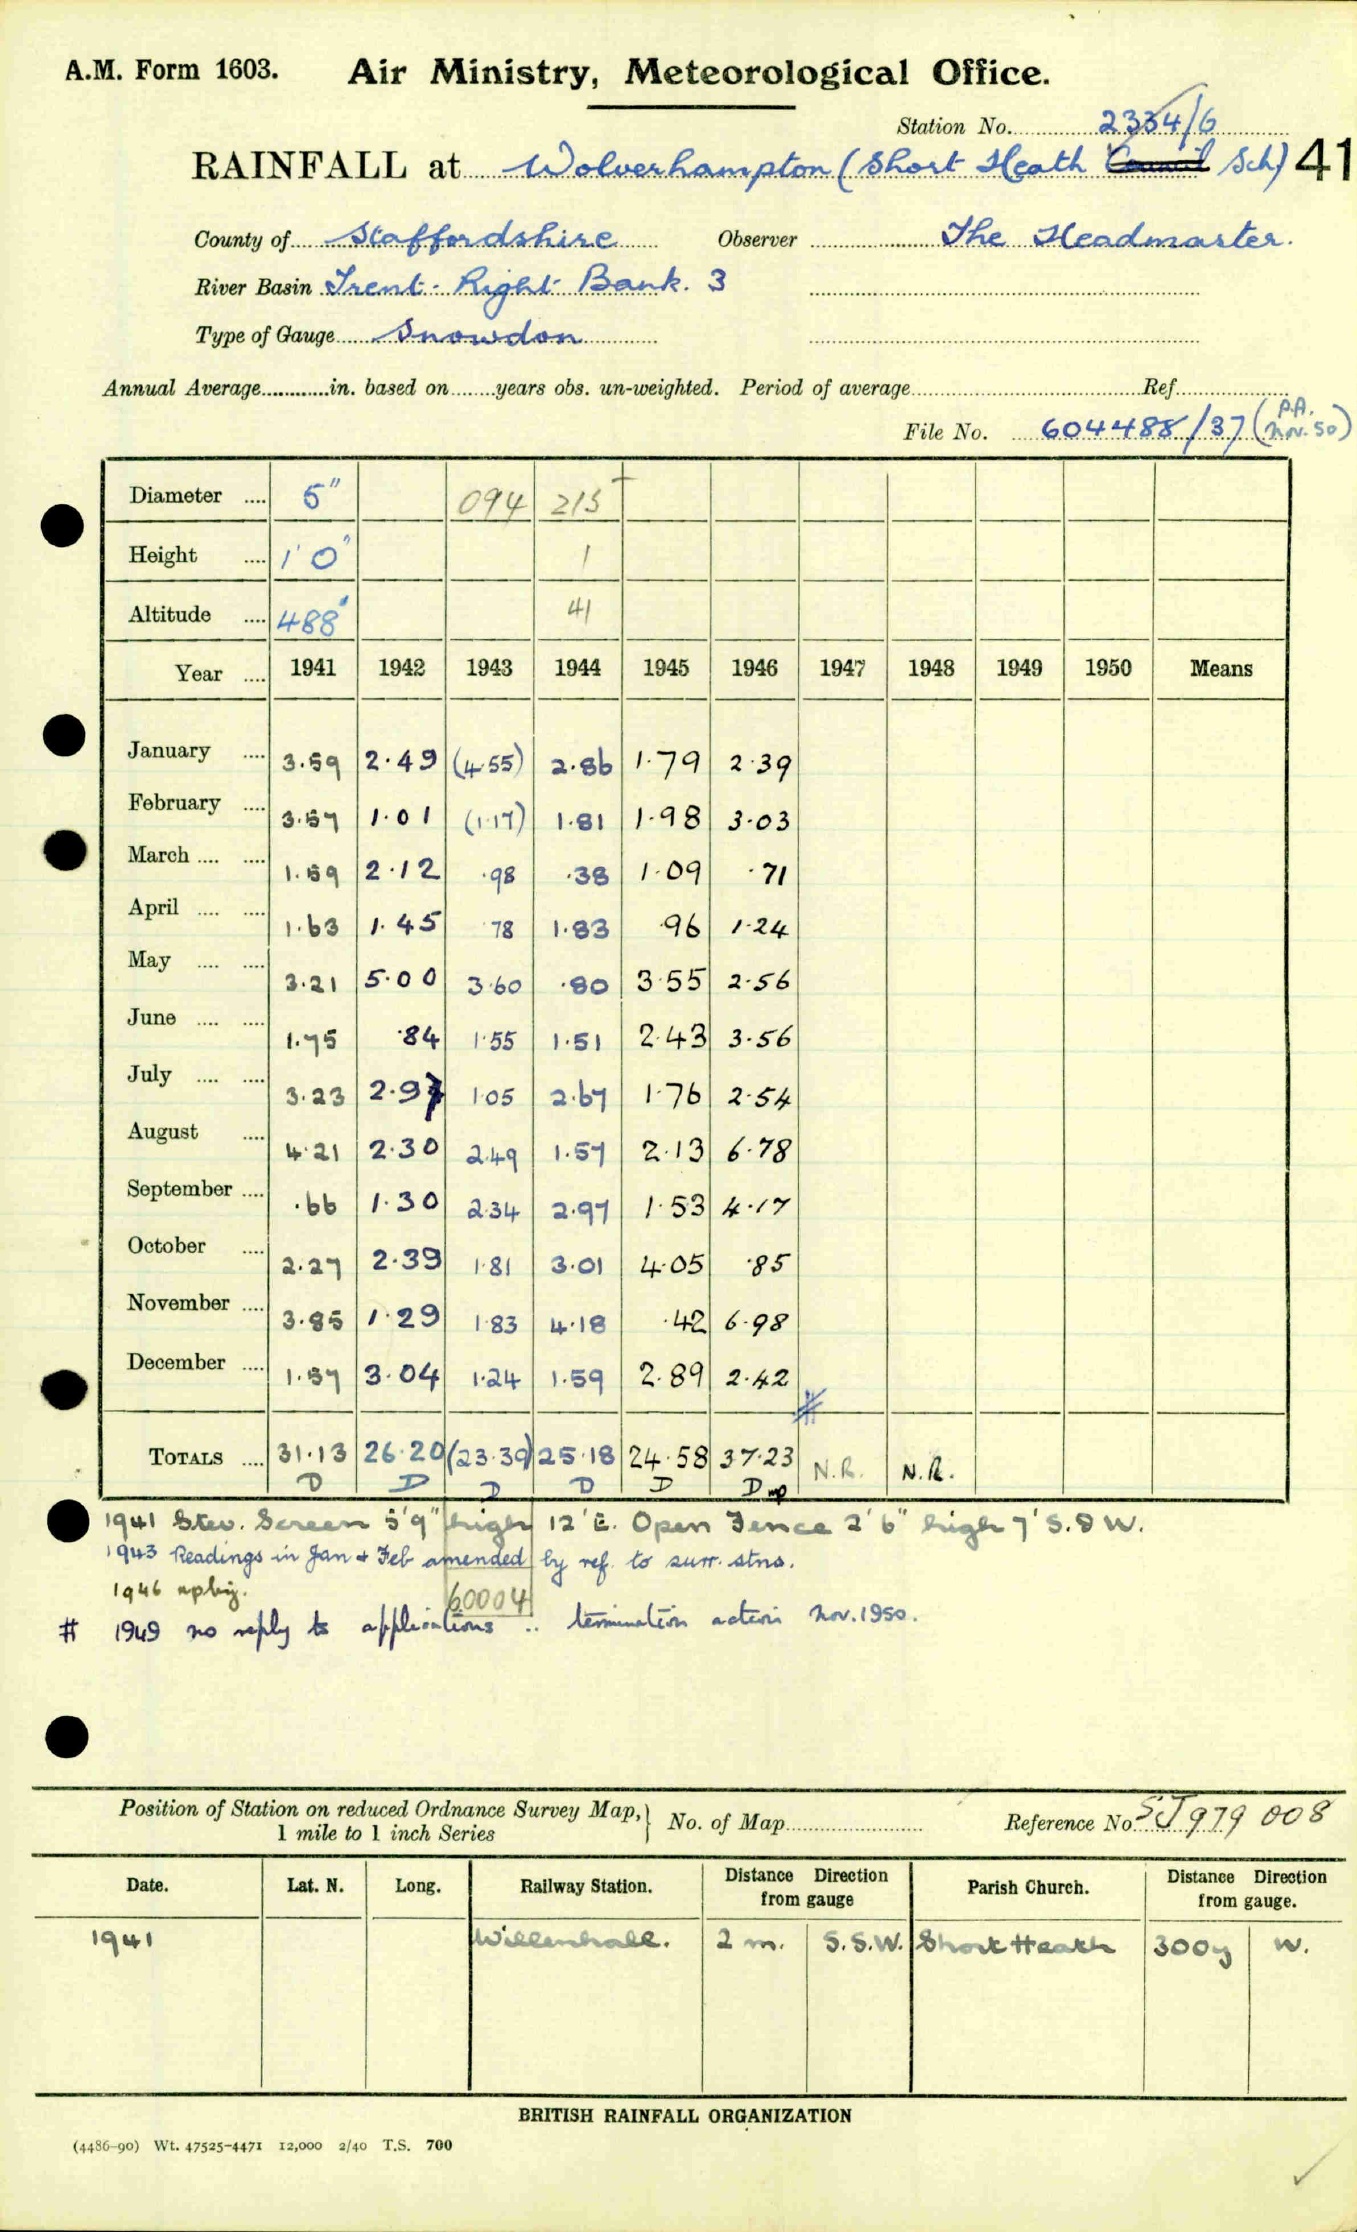 A.M. Form 1603. Air Ministry, Meteorological Office.
Station No. 2334/6
RAINFALL at Wolverhampton (Short Heath Council Sch) 41
County of Staffordshire Observer The Headmaster.
River Basin Trent - Right Bank. 3
Type of Gauge Snowdon
Annual Average............in. based on........years obs. un-weighted. Period of average Ref
File No. 604488/37 (P.A. Nov. 50)
Diameter .... 5" 094 215
Height .... 1' 0" 1
Altitude .... 488' 41
Year .... 1941 1942 1943 1944 1945 1946 1947 1948 1949 1950 Means
January .... 3.59 2.49 (4.55) 2.86 1.79 2.39
February .... 3.57 1.01 (1.17) 1.81 1.98 3.03
March .... .... 1.59 2.12 .98 .38 1.09 .71
April .... .... 1.63 1.45 78 1.83 .96 1.24
May .... .... 3.21 5.00 3.60 .80 3.55 2.56
June .... .... 1.75 .84 1.55 1.51 2.43 3.56
July .... .... 3.23 2.97 1.05 2.67 1.76 2.54
August .... 4.21 2.30 2.49 1.57 2.13 6.78
September .... .66 1.30 2.34 2.97 1.53 4.17
October .... 2.27 2.39 1.81 3.01 4.05 .85
November .... 3.85 1.29 1.83 4.18 .42 6.98
December .... 1.57 3.04 1.24 1.59 2.89 2.42 #
TOTALS .... 31.13 26.20 (23.39) 25.18 24.58 37.23 N.R. N.R.
D D D D D D np
1941 Stev. Screen 5'9" high 12' E. Open Fence 2'6" high 7' S. & W.
1943 Readings in Jan & Feb amended by ref. to surr. stns.
1946 npbiz.
60004
# 1949 no reply to applications .. termination action Nov. 1950.
Position of Station on reduced Ordnance Survey Map, 1 mile to 1 inch Series } No. of Map Reference No SJ 979 008
Date. Lat. N. Long. Railway Station. Distance Direction from gauge Parish Church. Distance Direction from gauge.
1941 Willenhall. 2 m. S.S.W. Short Heath 300y W.
BRITISH RAINFALL ORGANIZATION
(4486-90) Wt. 47525-4471 12,000 2/40 T.S. 700